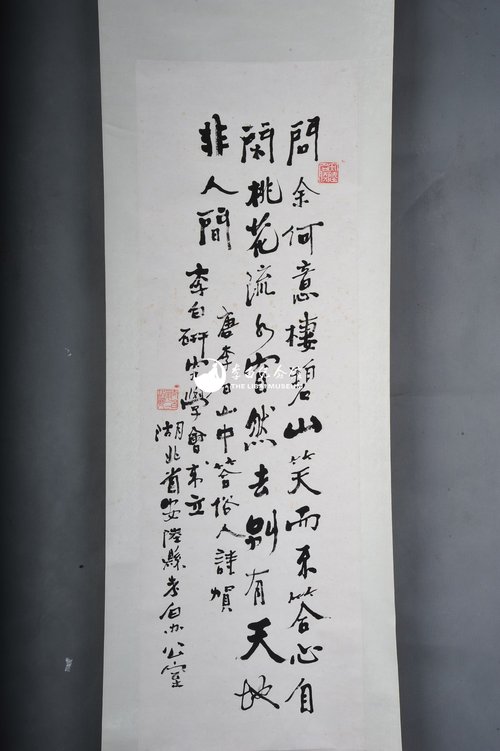 問余何意棲碧山笑而不答心自
閑桃花流水窅然去別有天地
非人間
唐李白山中答俗人詩賀
李白研究學會成立
湖北省安陸縣李白办公室
THE LIBAI MUSEUM